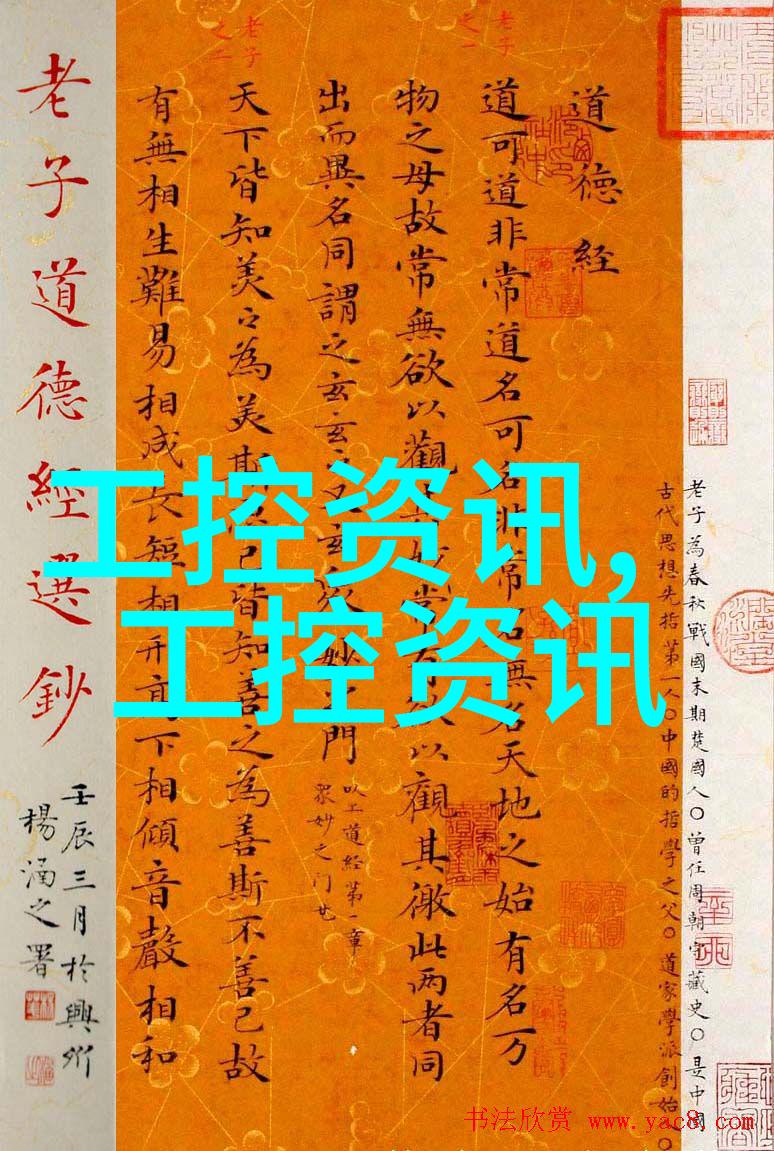 道德经
道可道非常道名可名非常名無名天地之始有名万
物之母故常無欲以觀其妙常有欲以觀其徼此两者同
出而異名同謂之玄玄之又玄衆妙之門
以上道经第一章
眾妙之门也
天下皆知美之為美斯惡已皆知善之為善斯不善已故
有無相生難易相成長短相形高下相傾音聲相和
老子
之一
老子
之二
老子道德經選鈔
壬辰三月於興
楊涵之署
老子為春秋戰國末期楚國人〇曾任周朝守藏史〇是中國
古代思想先指第一人〇中國的哲學之父〇道家學派創始〇
工控资讯,
工控资讯
书法欣赏 www.yac8.com